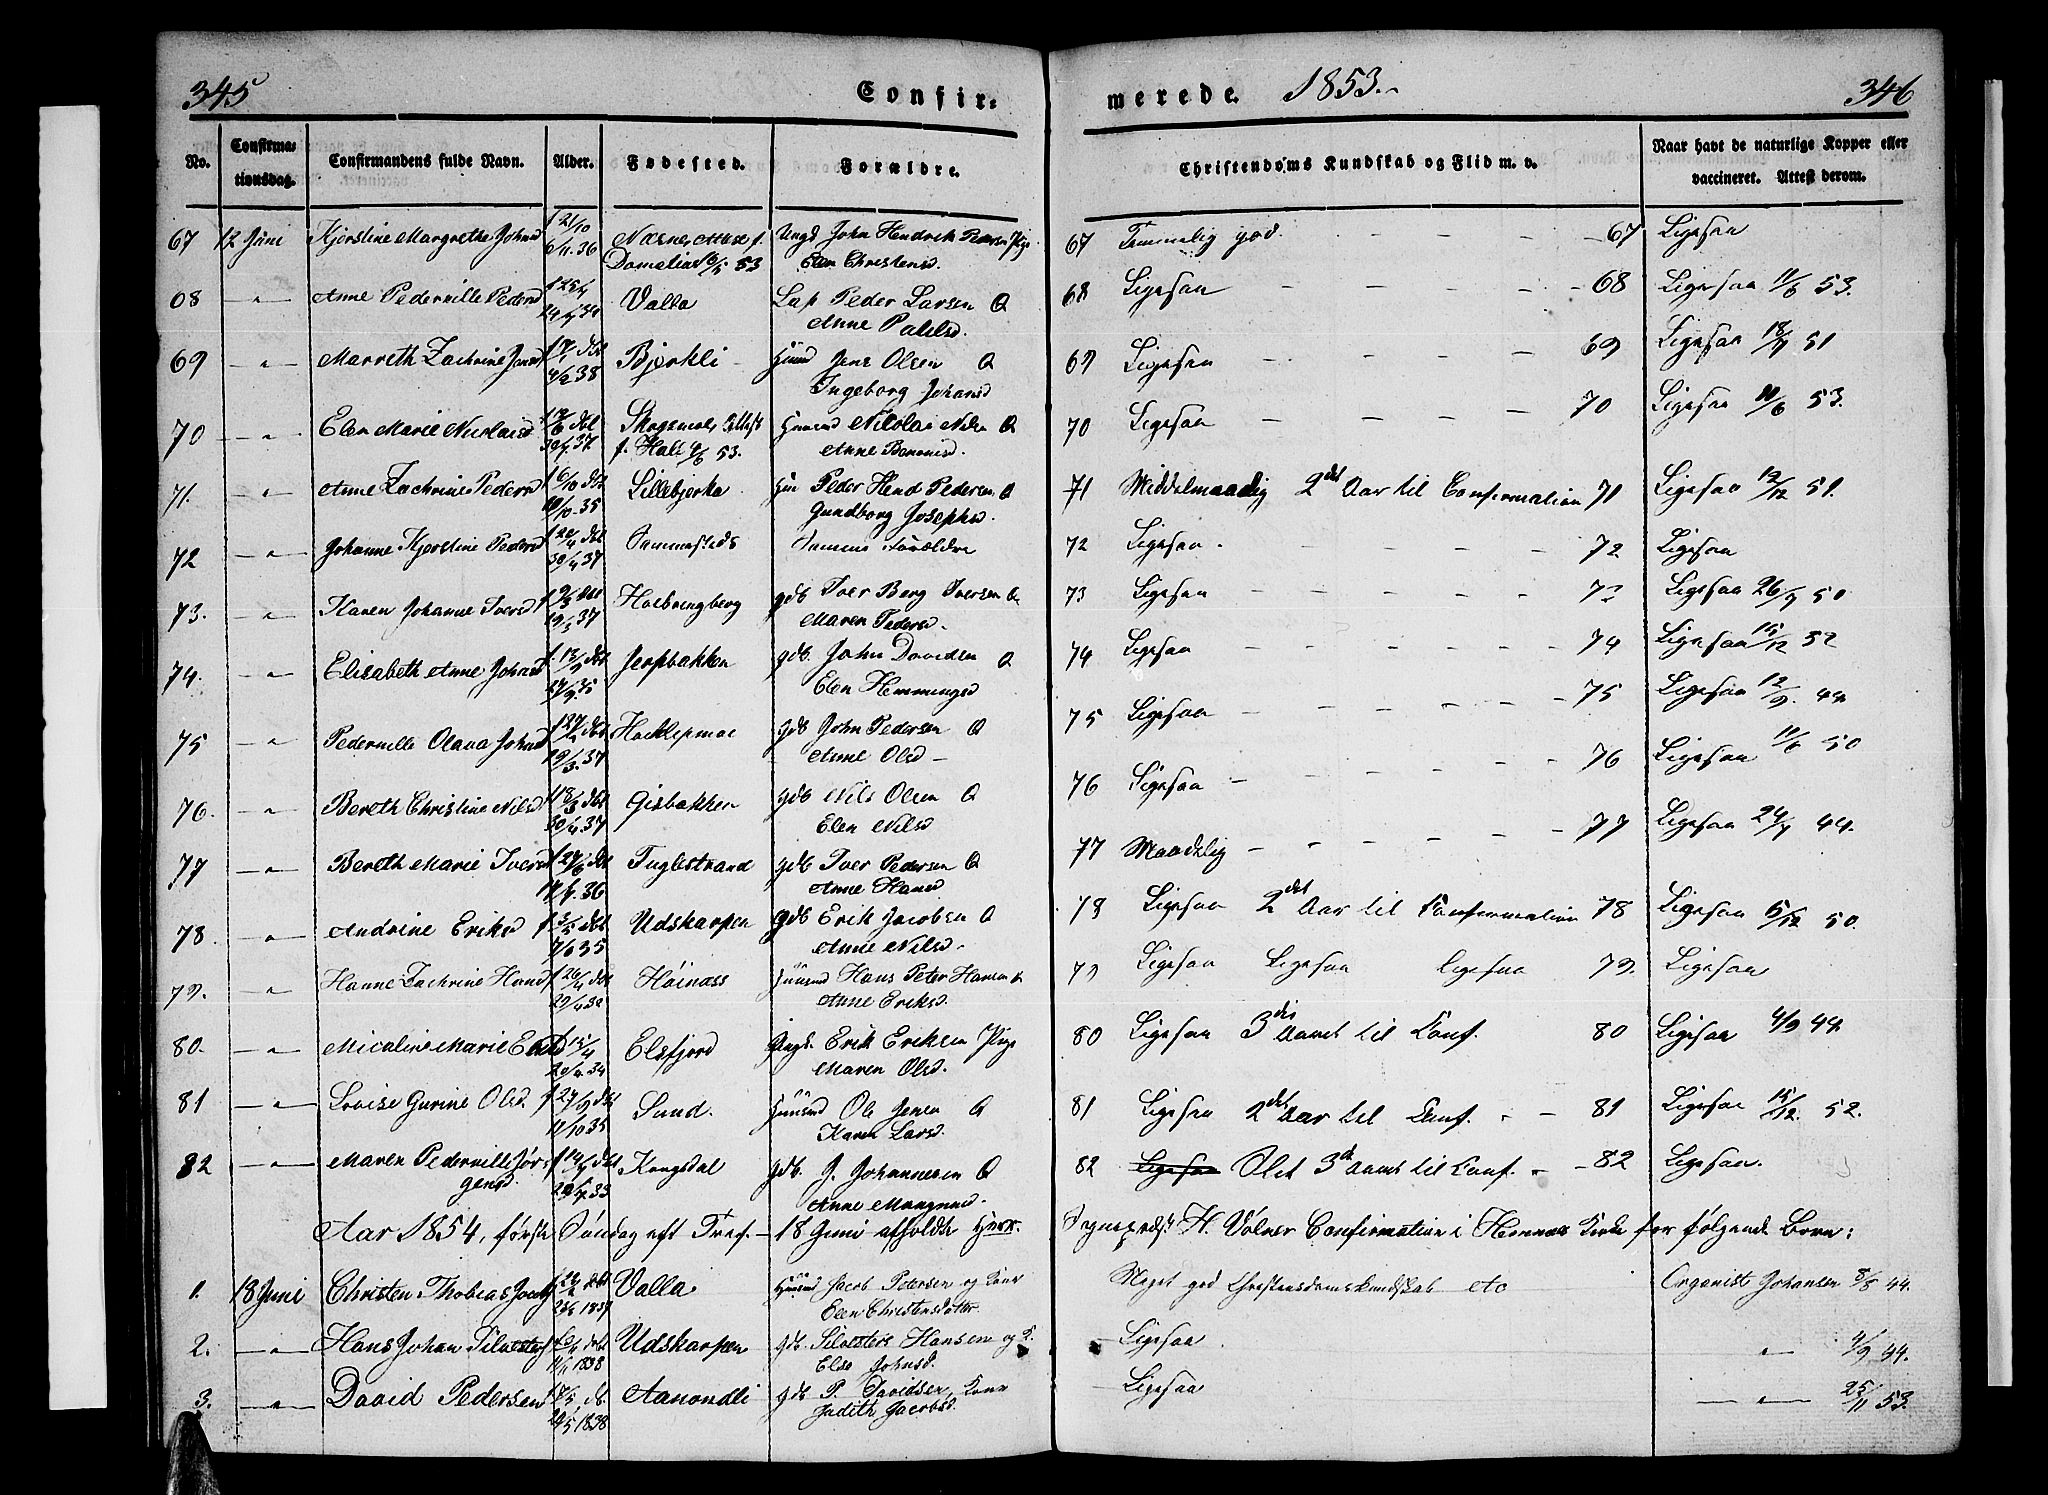 345
Confir-
merede. 1853.
346
No.
Confirma-
tionsdag.
Confirmandens fulde Navn.
Alder.
Fødested.
Forældre.
Christendoms Kundskab og Flid m. v.
Naar havt de naturlige Kopper eller
vaccineret. Attest derom.
67 12 Juni Kjerstine Margrethe Johnsd f 21/10 Ungd John Hendrik Pedersen Pige 67 Temmelig god. 67 Ligesaa
6/11.36 6/5 53 Elen Christensd.
68 Anne Pedernille Pedersd Valla Lap Peder Larsen Q 68 Ligesaa 68 Ligesaa 11/6 53.
Anne
69 Marreth Zachrine Jensd Bjerkli Huusmd Jens Olsen Q 69 Ligesaa 69 Ligesaa 18/7 51
4/2 38 Ingeborg Johansd
70 Elen Marie Nicolaisd Huusmd Nikolai Q 70 Ligesaa 70 Ligesaa 11/6 53.
37. 53. Anne
71. Anne Zachrine Pedersd f 6/10 dbt Lillebjerka Peder Hend Pedersen Q 71 Middelmaadig 2det Aar til Confirmation 71 Ligesaa 12/12 51.
35 Gundborg Josephsd.
72 Johanne Kjerstine Pedersd f 20/4 dbt Sammesteds Samme Forældre 72 Ligesaa. 72 Ligesaa
30/4 37
73. Karen Johanne Iversd gdb Iver Berg Iversen Q 73 Ligesaa 73 Ligesaa 26/7 50
19/3 37 Maren Pedersd.
74. Elisabeth Anne Johnsd f. 13/9 dbt gdb. John Davidsen Q 74 Ligesaa 74 Ligesaa 15/12 52
27/9 35 Elen Hemmingsd
75 Pedernille Olava Johnsd gdb John Pedersen Q 75 Ligesaa 75 Ligesaa 12/9. 44
19/3.37 Anne Olsd
76. Bereth Christine Nilsd f 18/3 dbt Gisbakken gdb Nils Olsen Q 76 Ligesaa 76 Ligesaa 11/6 50
30/4.37 Elen Nilsd
77 Bereth Marie Iversd Fuglestrand gdb Iver Pedersen Q 77 Maadelig 77 Ligesaa 24/7 44.
36 Anne Hansd
78. Andrine Eriksd f 3/5 dbt Udskarpen gdb Erik Jacobsen Q 78 Ligesaa 2det Aar til Confirmation 78 Ligesaa 5/12 50.
35 Anne Nilsd.
79. Hanne Zachrine Hansd f 26/4 dbt Høinæss Huusmd Hans Peter Hansen Q 79 Ligesaa Ligesaa ligesaa 79. Ligesaa
Anne Eriksd.
80. Micaline Marie 15/4 Elsfjord Ungk. Erik Eriksen Pige 80 Ligesaa 3die Aaret til Conf. 80 Ligesaa 4/9 44
20/4.34 Maren Olsd.
81 Lovise Gurine Olsd. f 27/9 dbt Sund. Huusmd Ole Jensen Q 81 Ligesaa 2det Aar til Conf. 81 Ligesaa 15/12. 52.
11/10 35 Karen Larsd.
82 Maren Pedernille Jør- Kongsdal gdb. J. Johannesen Q 82 Ligesaa Slet 3de Aaret til Conf. 82 Ligesaa.
gensd. 33 Anne Mangnusd.
Aar 1854, første Søndag eft Tref. 18 Juni afholdte Herr Sognepræst H. Vølner Confirmation i Hemnæs Kirke for følgende Børn:
1. 18 Juni Christen Thobias Jacobs Valla Huusmd Jacob Petersen og Kone Meget god Christendomskundskab etc Organist Johansen 5/8 44.
1839 Elen Christensdatter.
2. Hans Johan Silvesters Udskarpen gdb. Silvesters Hansen og K. Ligesaa 4/9 44.
11/11 1838 Else Johnsd.
3. David Pedersen Aanondli gdb P. Davidsen, Kone Ligesaa 25/11 53.
1838 Judith Jacobsd.